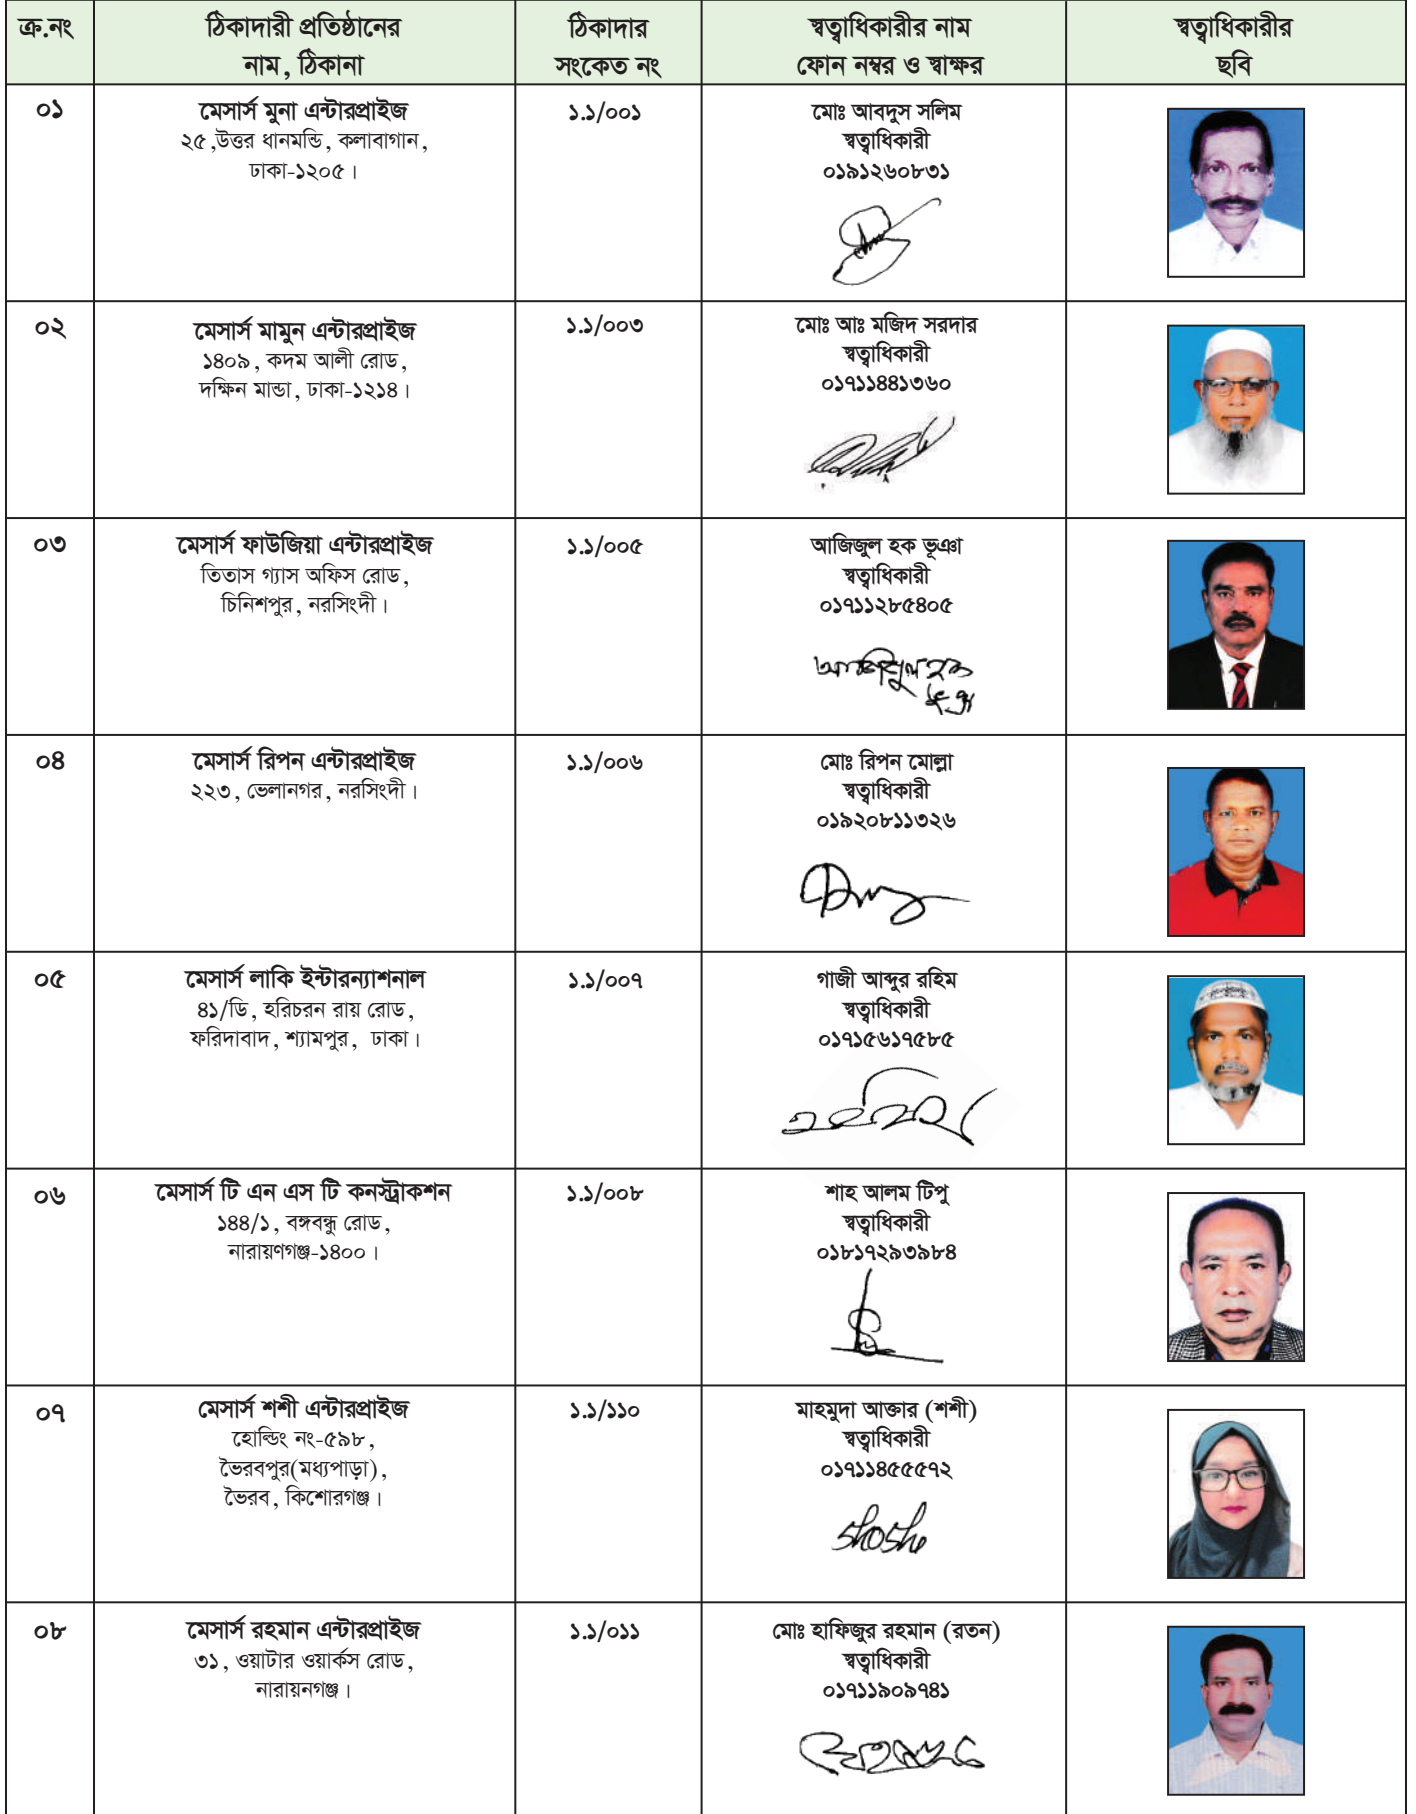 ক্র.নং
ঠিকাদারী প্রতিষ্ঠানের
নাম, ঠিকানা
ঠিকাদার
সংকেত নং
স্বত্বাধিকারীর নাম
ফোন নম্বর ও স্বাক্ষর
স্বত্বাধিকারীর
ছবি
০১
মেসার্স মুনা এন্টারপ্রাইজ
২৫,উত্তর ধানমন্ডি, কলাবাগান,
ঢাকা-১২০৫।
১.১/০০১
মোঃ আবদুস সলিম
স্বত্বাধিকারী
০১৯১২৬০৮৩১
০২
মেসার্স মামুন এন্টারপ্রাইজ
১৪০৯, কদম আলী রোড,
দক্ষিন মান্ডা, ঢাকা-১২১৪।
১.১/০০৩
মোঃ আঃ মজিদ সরদার
স্বত্বাধিকারী
০১৭১১৪৪১৩৬০
০৩
মেসার্স ফাউজিয়া এন্টারপ্রাইজ
তিতাস গ্যাস অফিস রোড,
চিনিশপুর, নরসিংদী।
১.১/০০৫
আজিজুল হক ভূঞা
স্বত্বাধিকারী
০১৭১১২৮৫৪০৫
আজিজুল হক
ভূঞা
০৪
মেসার্স রিপন এন্টারপ্রাইজ
২২৩, ভেলানগর, নরসিংদী।
১.১/০০৬
মোঃ রিপন মোল্লা
স্বত্বাধিকারী
০১৯২০৮১১৩২৬
০৫
মেসার্স লাকি ইন্টারন্যাশনাল
৪১/ডি, হরিচরন রায় রোড,
ফরিদাবাদ, শ্যামপুর, ঢাকা।
১.১/০০৭
গাজী আব্দুর রহিম
স্বত্বাধিকারী
০১৭১৫৬১৭৫৮৫
০৬
মেসার্স টি এন এস টি কনস্ট্রাকশন
১৪৪/১, বঙ্গবন্ধু রোড,
নারায়ণগঞ্জ-১৪০০।
১.১/০০৮
শাহ আলম টিপু
স্বত্বাধিকারী
০১৮১৭২৯৩৯৮৪
০৭
মেসার্স শশী এন্টারপ্রাইজ
হোল্ডিং নং-৫৯৮,
ভৈরবপুর(মধ্যপাড়া),
ভৈরব, কিশোরগঞ্জ।
১.১/১১০
মাহমুদা আক্তার (শশী)
স্বত্বাধিকারী
০১৭১১৪৫৫৫৭২
Shoshe
০৮
মেসার্স রহমান এন্টারপ্রাইজ
৩১, ওয়াটার ওয়ার্কস রোড,
নারায়নগঞ্জ।
১.১/০১১
মোঃ হাফিজুর রহমান (রতন)
স্বত্বাধিকারী
০১৭১১৯০৯৭৪১